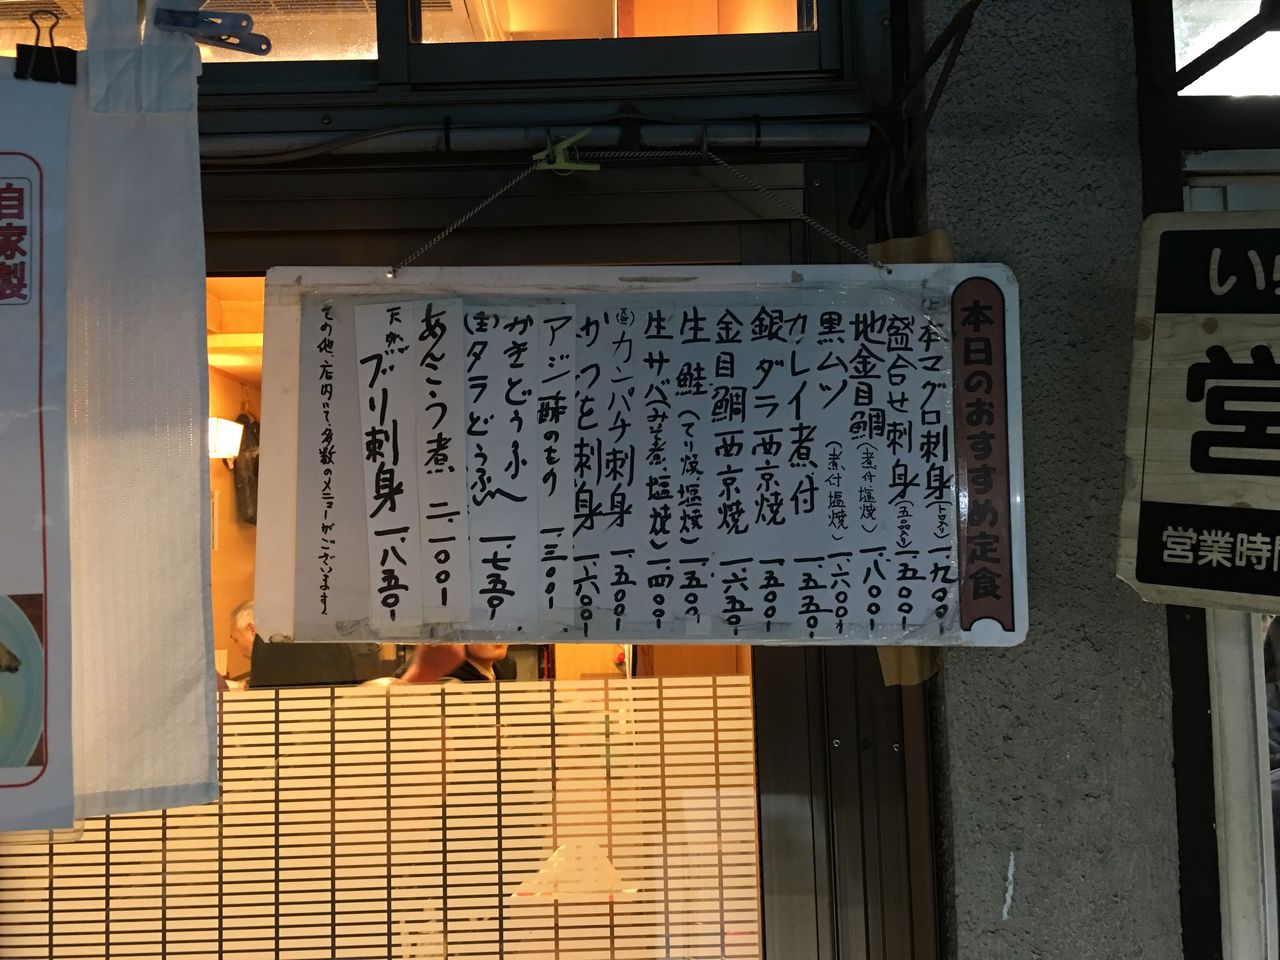 本日のおすすめ定食
(上)本マグロ刺身(トロ入り) 一、九〇〇ー
盛合せ刺身(五品入り) 一、五〇〇ー
地金目鯛(煮付 塩焼) 一、八〇〇ー
黒ムツ(煮付 塩焼) 一、六〇〇ー
カレイ煮付 一、五五〇ー
銀ダラ西京焼 一、五〇〇ー
金目鯛西京焼 一、六五〇ー
生鮭(てり焼、塩焼) 一、五〇〇ー
生サバ(みそ煮、塩焼) 一、四〇〇ー
カンパチ刺身 一、五〇〇ー
かつを刺身 一、六〇〇ー
アジ酢のもの 一、三〇〇ー
かきどうふ
タラどうふ 一、七五〇ー
あんこう煮 二、一〇〇ー
天然ブリ刺身 一、八五〇ー
その他、店内にて多数のメニューがございます。
自家製
いら
営
営業時間